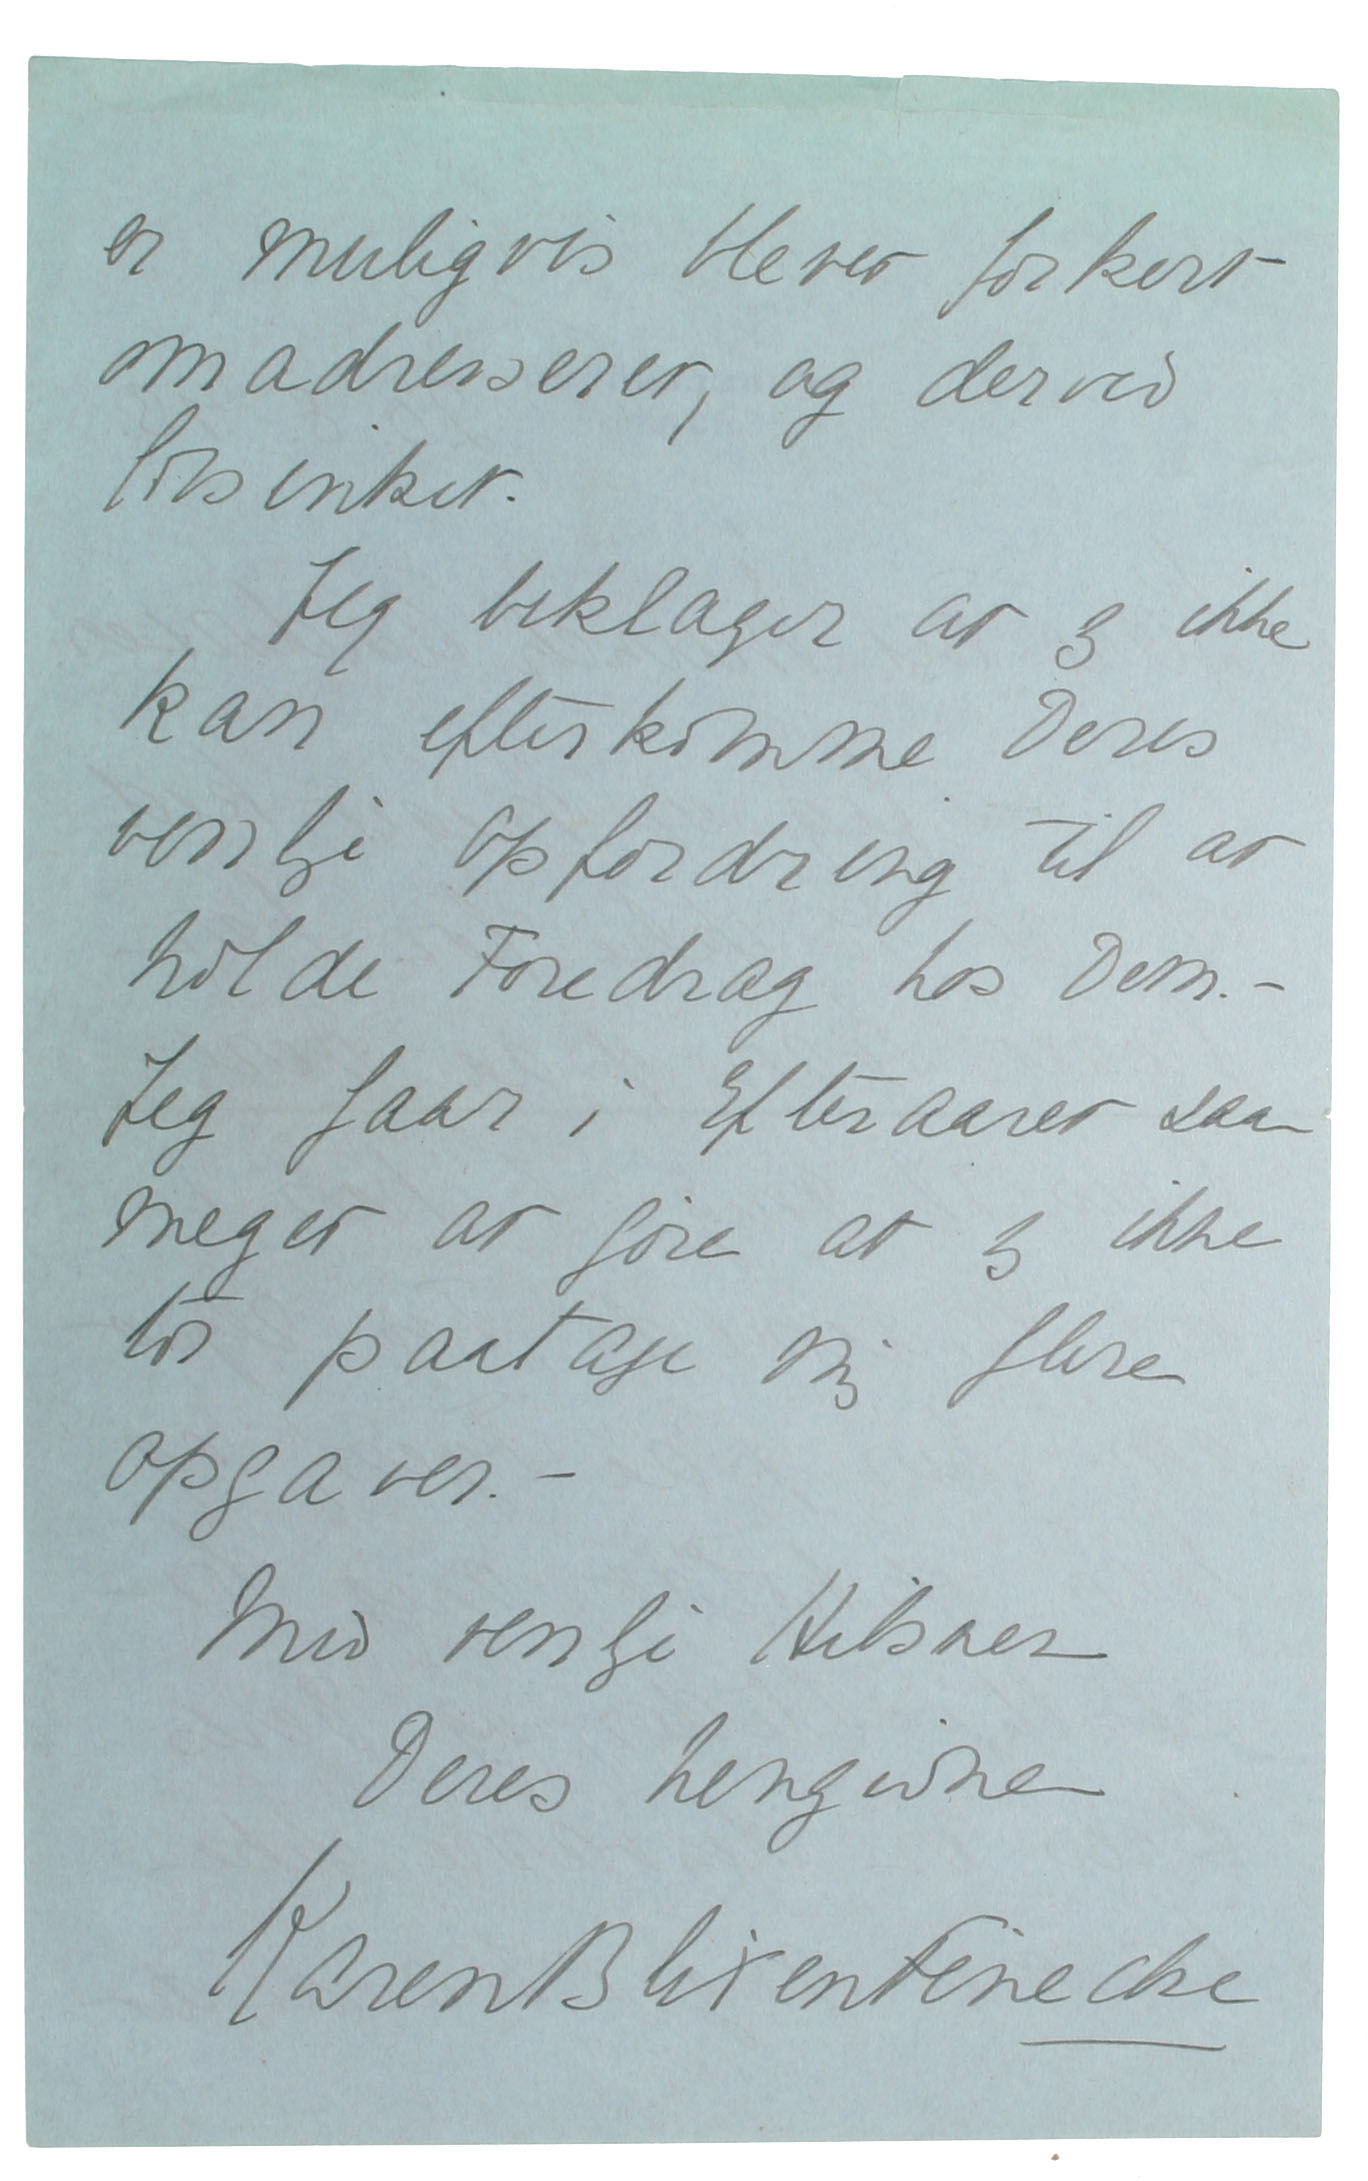 er muligvis blevet forkert
omadresseret, og derved
forsinket.
Jeg beklager at jeg ikke
kan efterkomme Deres
venlige Opfordring til at
holde Foredrag hos Dem. -
Jeg faar i Efteraaret saa
meget at gøre at jeg ikke
tør paatage mig flere
opgaver. -
Med venlige Hilsner
Deres hengivne
Karen Blixen Finecke